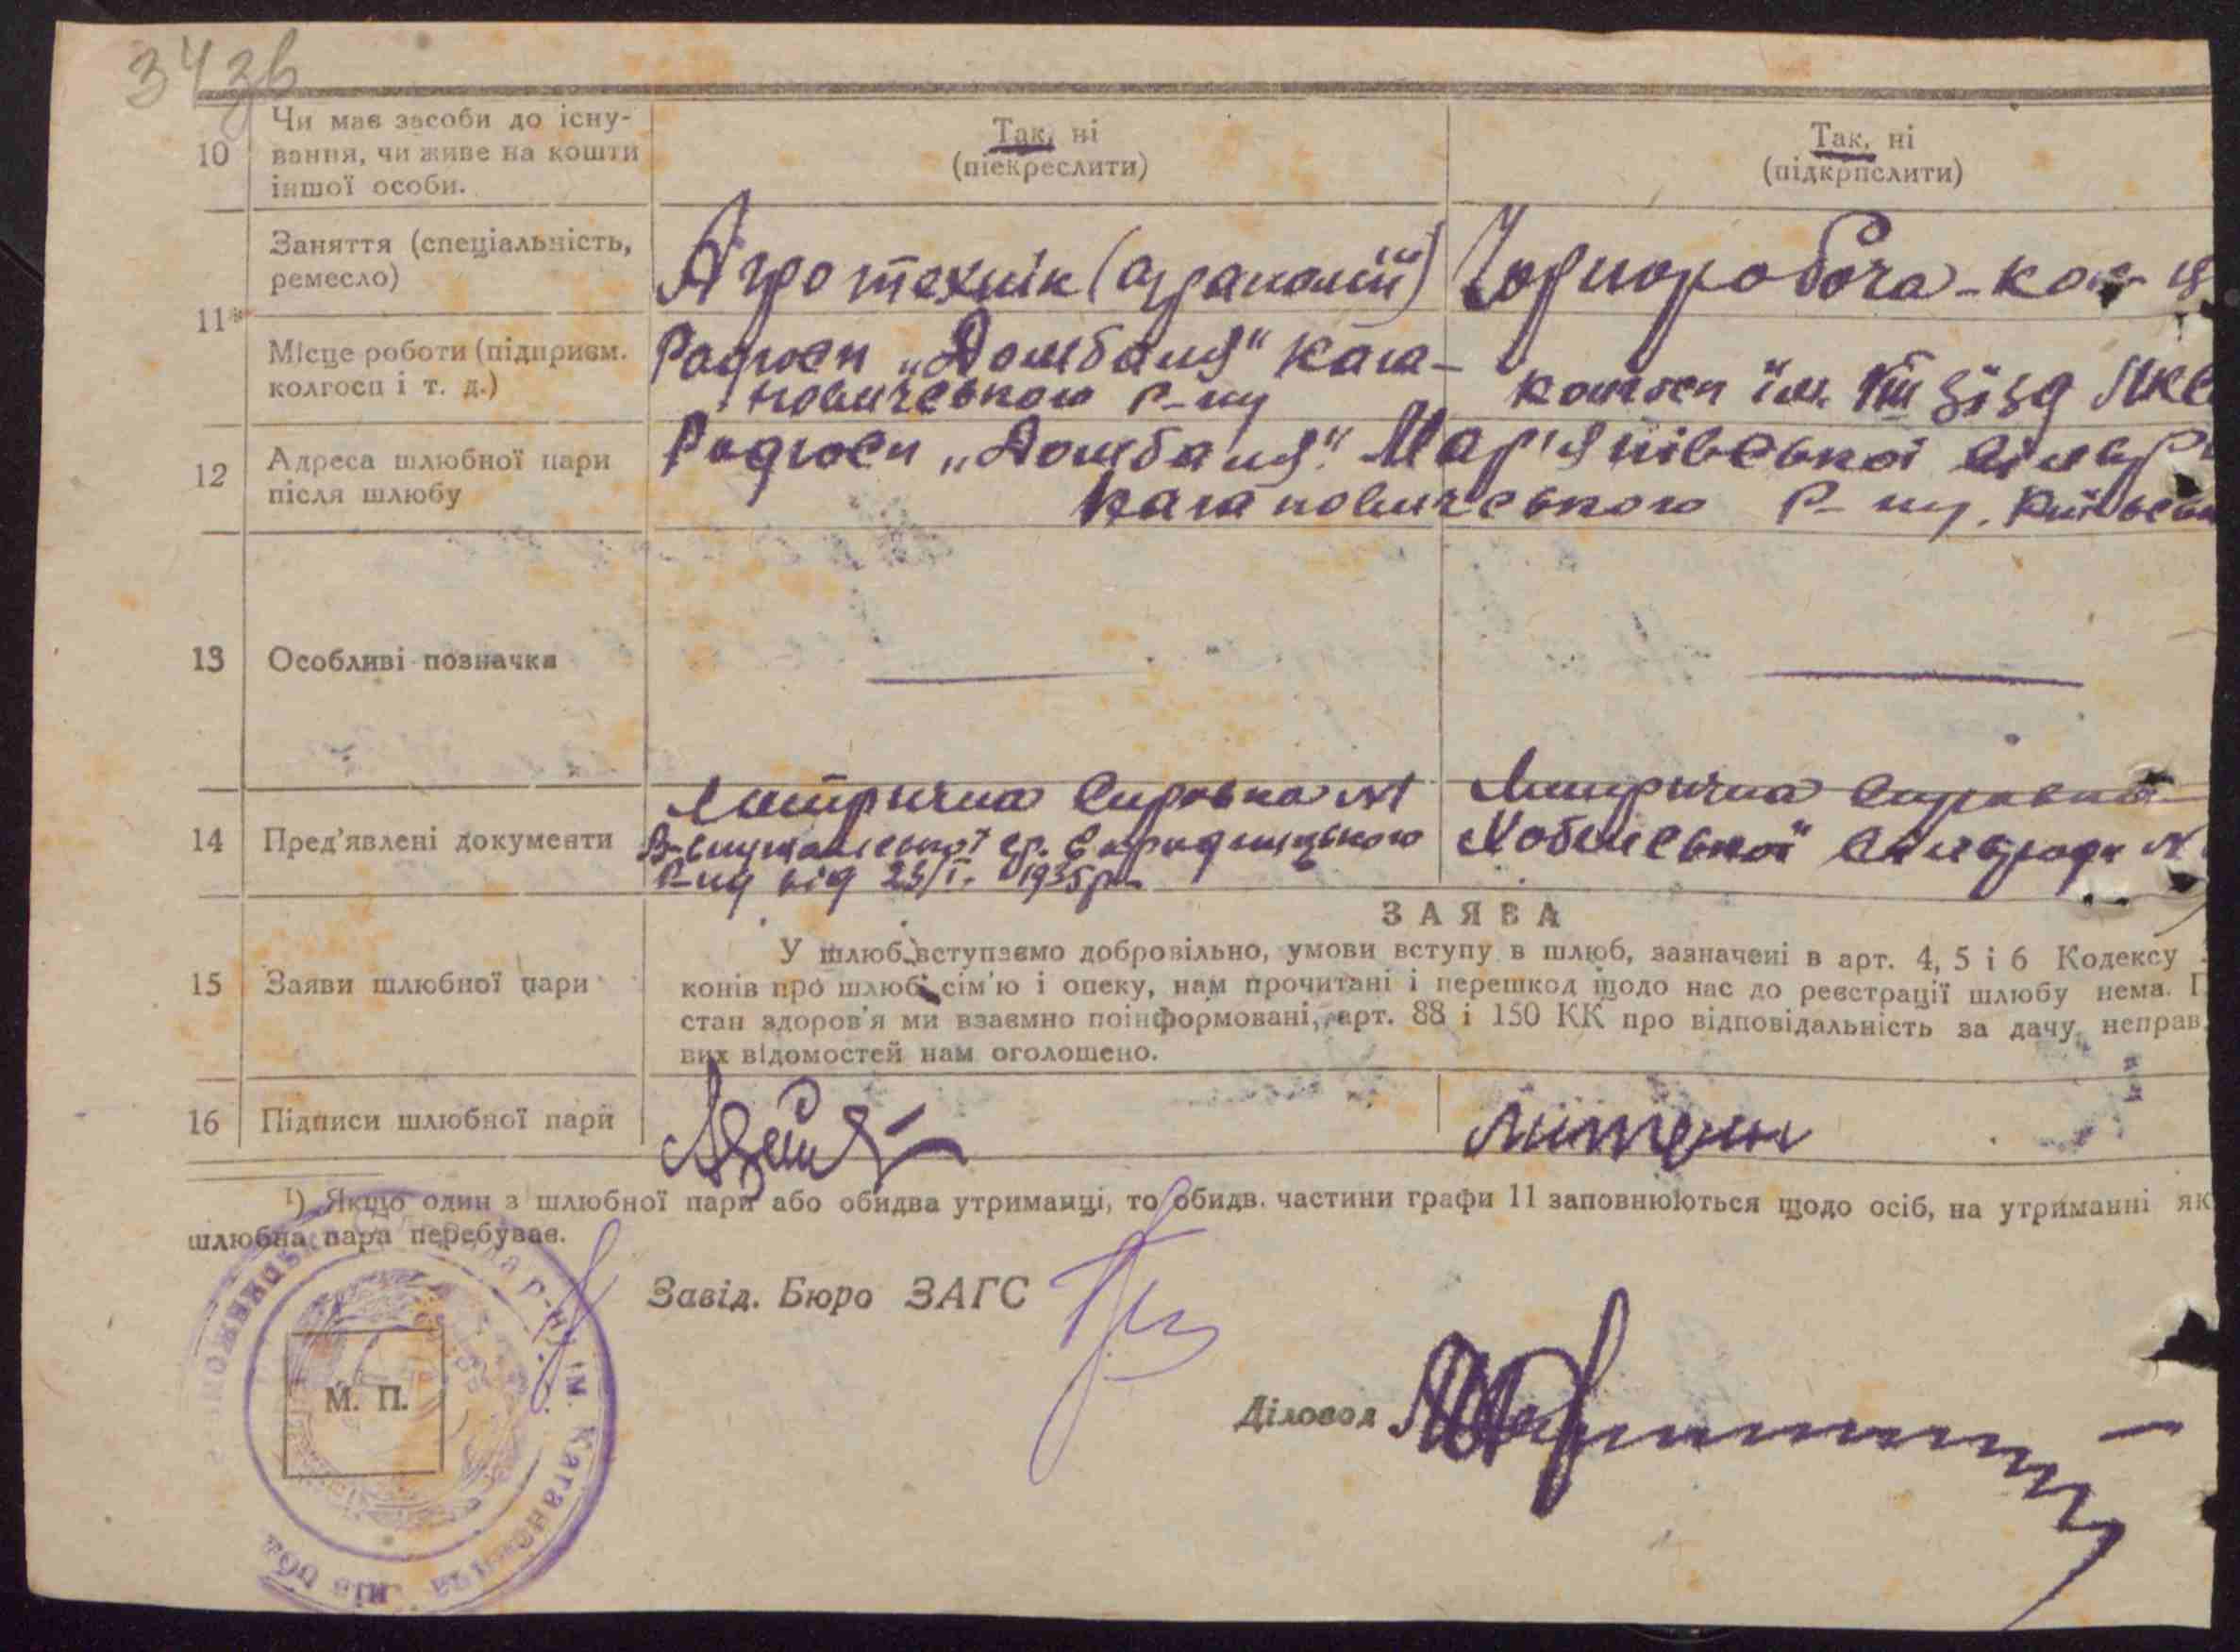 343б
10
Чи має засоби до існу-
вання, чи живе на кошти
іншої особи.
Так, ні
(піекреслити)
Так, ні
(підкрпслити)
11
Заняття (спеціальність,
ремесло)
Агротехнік
Чорноробоча
Місце роботи (підприєм.
колгосп і т. д.)
Радгосп „Домбаля" Кага-
новичського Р-ну
колгосп їм. з'їзд
12
Адреса шлюбної пари
після шлюбу
Радгосп „Домбаля" Мар'янівської сільр
Кагановичського Р-ну. Київськ
13
Особливі позначки
14
Пред'явлені документи
Митрична справка №1
Р-ну від 23/І. 1935р.
Митрична справка
Хобненської сільради №
15
Заяви шлюбної пари
ЗАЯВА
У шлюб вступаємо добровільно, умови вступу в шлюб, зазначені в арт. 4, 5 і 6 Кодексу
конів про шлюб, сім'ю і опеку, нам прочитані і перешкод щодо нас до реєстрації шлюбу нема. П
стан здоров'я ми взаємно поінформовані, арт. 88 і 150 КК про відповідальність за дачу неправ
вих відомостей нам оголошено.
16
Підписи шлюбної пари
¹) Якщо один з шлюбної пари або обидва утриманці, то обидв. частини графи 11 заповнюються щодо осіб, на утриманні як
шлюбна пара перебуває.
Завід. Бюро ЗАГС
М. П.
р-ну ім. Кагановича
Діловод